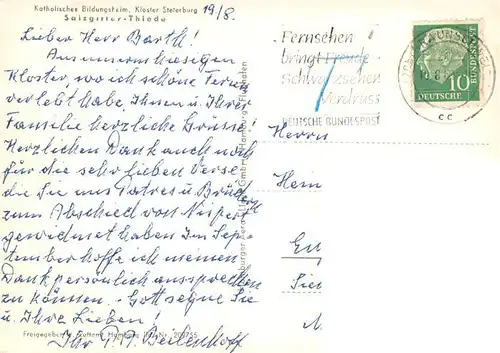 Katholisches Bildungsheim, Kloster Steterburg
Salzgitter-Thiede
19/8.
Lieber Herr Barth!
Aus unserm hiesigen
Kloster, wo ich schöne Ferien
verlebt habe, Ihnen u. Ihrer
Familie herzliche Grüsse!
Herzlichen Dank auch noch
für die sehr lieben Verse
die Sie uns Patres u. Brüdern
zum Abschied von
gewidmet haben. Im Sep-
tember hoffe ich meinen
Dank persönlich aussprechen
zu können. Gott segne Sie
u. Ihre Lieben!
Ihr P.
Freigegeben Hamburg Nr. 209755
Fernsehen
bringt Freude
Schwarzsehen
Verdruss
DEUTSCHE BUNDESPOST
DEUTSCHE BUNDESPOST
10
cc
Herrn
Hein
Em
Sie